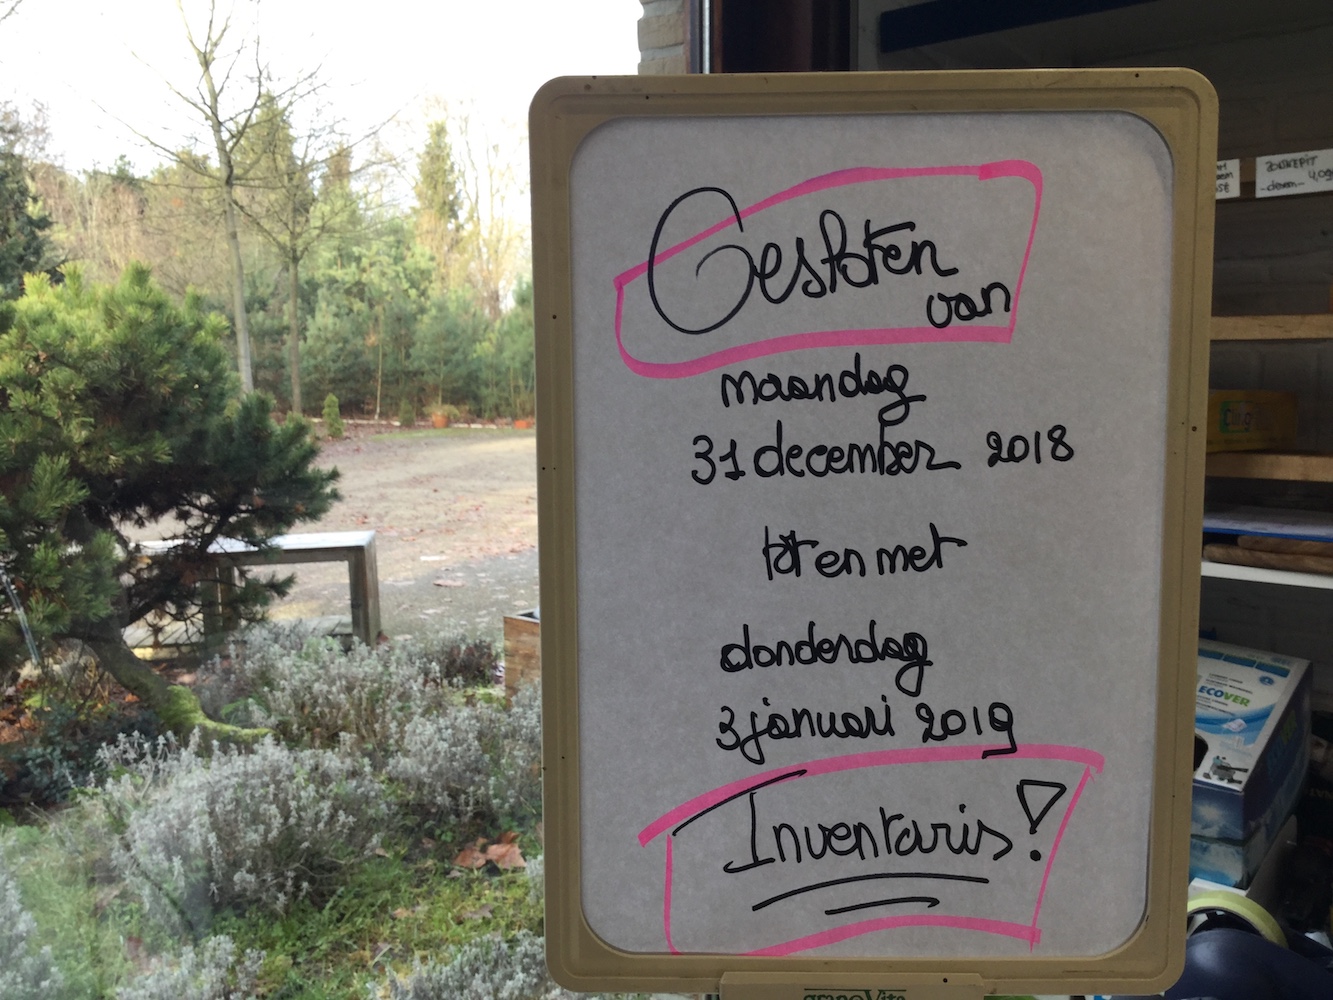 Gesloten
van
maandag
31 december 2018
tot en met
donderdag
3 januari 2019
Inventaris!
ZONNEPIT
ECOVER